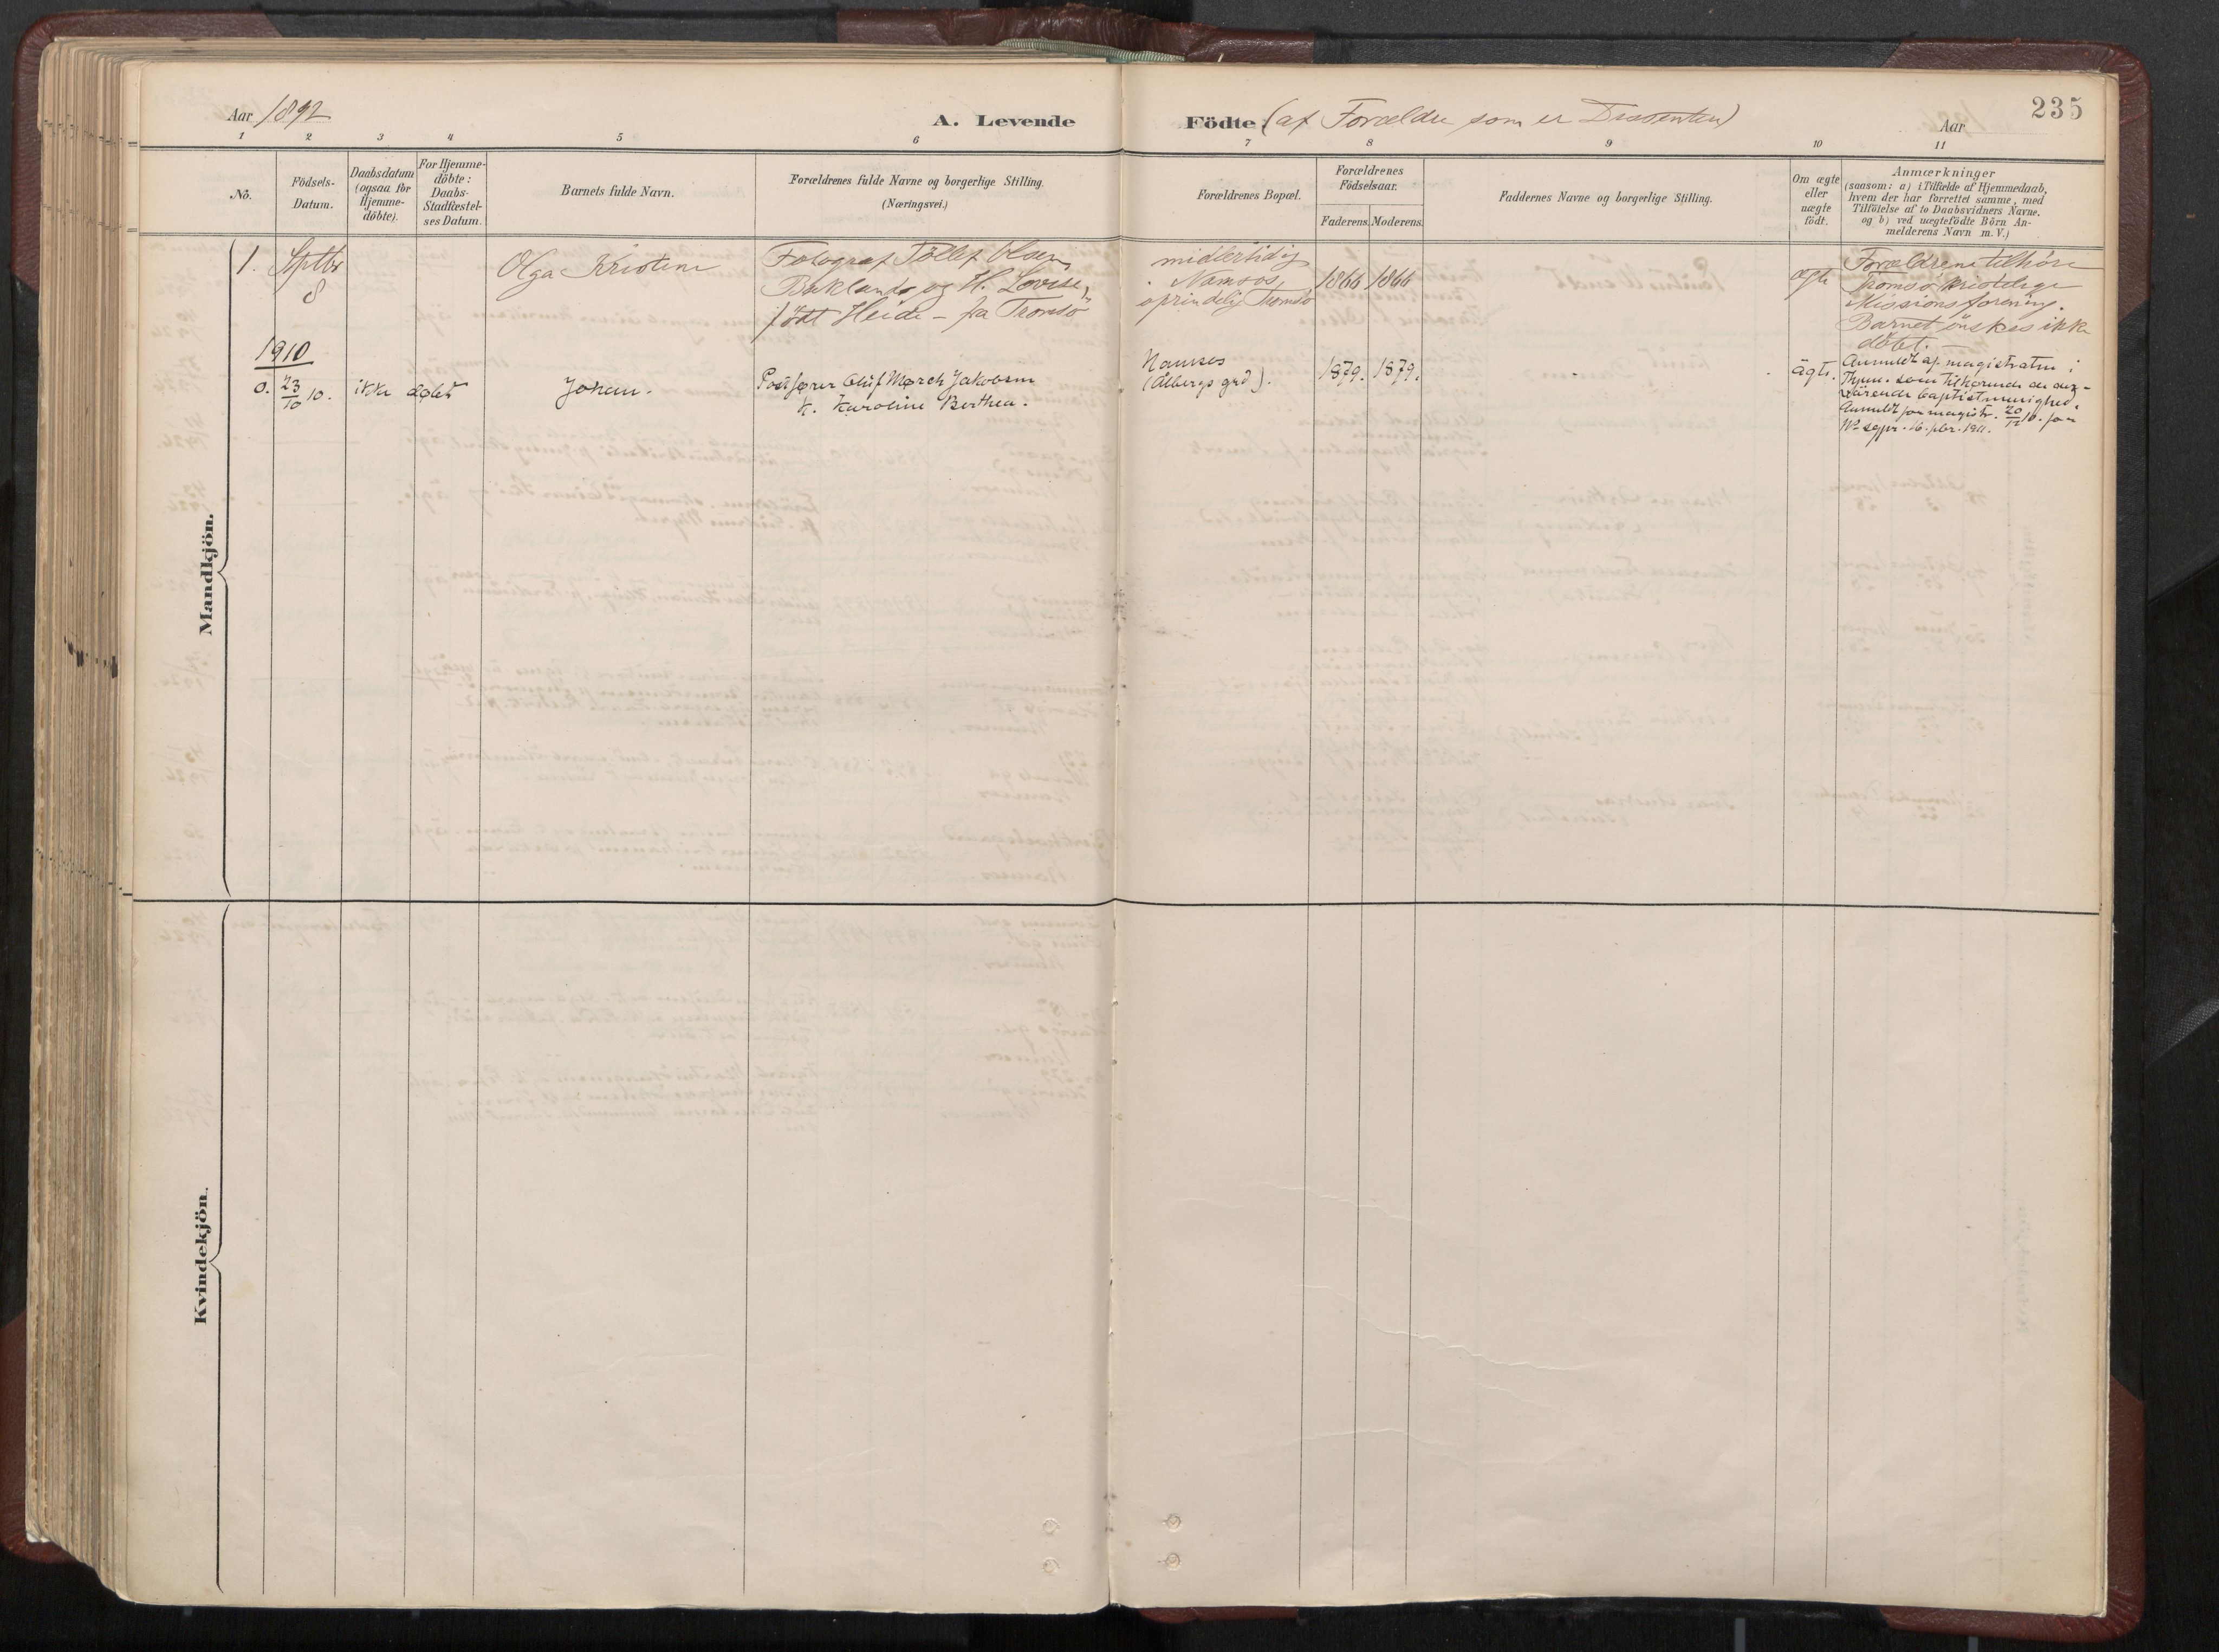 Aar 1892
A. Levende Födte (af Forældre som er Dissenter)
Aar
235
1 2 3 4 5 6 7 8 9 10 11
No.
Födsels-
Datum.
Daabsdatum
(ogsaa for
Hjemme-
döbte).
For Hjemme-
döbte:
Daabs-
Stadfæstel-
ses Datum.
Barnets fulde Navn.
Forældrenes fulde Navne og borgerlige Stilling.
(Næringsvei.)
Forældrenes Bopæl.
Forældrenes
Födselsaar.
Faderens. Moderens.
Faddernes Navne og borgerlige Stilling.
Om ægte
eller
uægte
födt.
Anmærkninger
(saasom: a) i Tilfælde af Hjemmedaab,
hvem der har forrettet samme, med
Tilföielse af to Daabsvidners Navne.
og b) ved uægtefödte Börn An-
melderens Navn m. V.)
Mandkjön.
1.
Septbr
8
Olga Kristine
Fotograf Tollef Olsen
Baklands og H. Lovise,
född Heide - fra Tromsö
midlertidig
Namsos,
oprindelig Tromsö
1866 1866
ægte
Forældrene tilhöre
Tromsö kristelige
Missionsforening.
Barnet önskes ikke
döbt.
1910
0.
23/10 10.
ikke døbt
Johan.
Postfører Oluf Mørch Jakobsen
h. Karoline Berthea.
Namsos
(Albergs grd.).
1879. 1879.
ägte.
Anmeldt af magistraten i
Thjem. som tilhørende de der-
værende baptistmenighed.
Anmeldt for magistr. 20/12 10. for
sgpr. 16. fbr. 1911.
Kvindekjön.